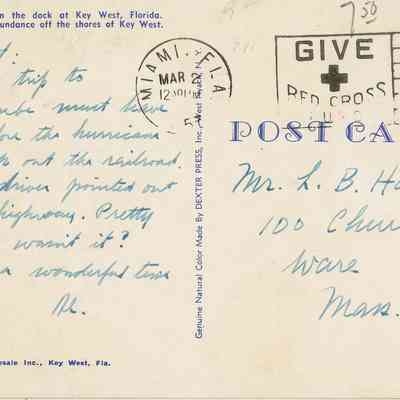 n the dock at Key West, Florida.
undance off the shores of Key West.
7 50
MIAMI, FLA
MAR 2
12
GIVE
RED CROSS
trip to
must have
the hurricane
out the railroad.
driver pointed out
highway. Pretty
wasn't it?
a wonderful time
Al.
Genuine Natural Color Made By DEXTER PRESS, Inc., West Nyack, N. Y.
POST CA
Mr. L. B. Ha
100 Chur
Ware
Mass.
sale Inc., Key West, Fla.